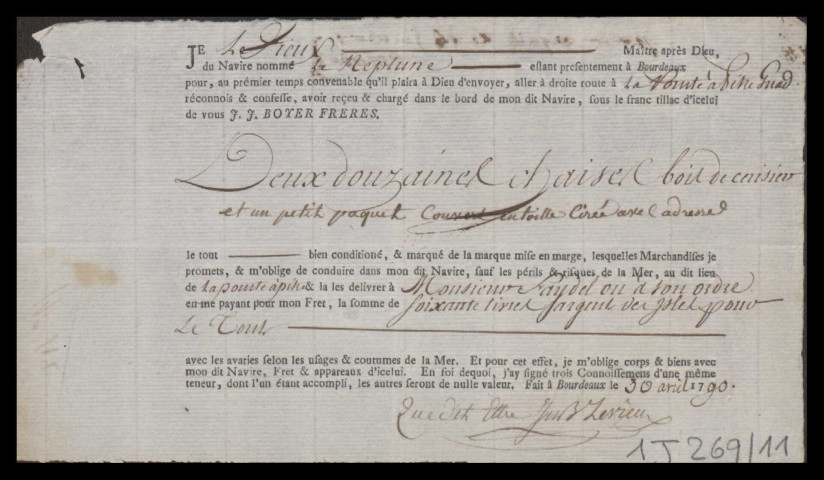 JE Le Vieux Maître après Dieu,
du Navire nommé le Neptune estant presentement à Bourdeaux
pour, au prémier temps convenable qu'il plaira à Dieu d'envoyer, aller à droite route à La Pointe à Pitre Guad.
réconnois & confesse, avoir reçeu & chargé dans le bord de mon dit Navire, sous le franc tillac d'icelui
de vous J. J. BOYER FRERES,
Deux douzaines chaises bois de cerisier
et un petit paquet Couvert en toille Cirée avec adresse
le tout bien conditioné, & marqué de la marque mise en marge, lesquelles Marchandises je
promets, & m'oblige de conduire dans mon dit Navire, sauf les périls & risques de la Mer, au dit lieu
de La pointe à pitre & la les delivrer à Monsieur ou à son ordre
en me payant pour mon Fret, la somme de soixante livres d'argent des Isles pour
Le Tout
avec les avaries selon les usages & coutumes de la Mer. Et pour cet effet, je m'oblige corps & biens avec
mon dit Navire, Fret & appareaux d'icelui. En foi dequoi, j'ay signé trois Connoissemens d'une même
teneur, dont l'un étant accompli, les autres seront de nulle valeur. Fait à Bourdeaux le 30 avril 1790.
Que dit Etre
1 J 269/11